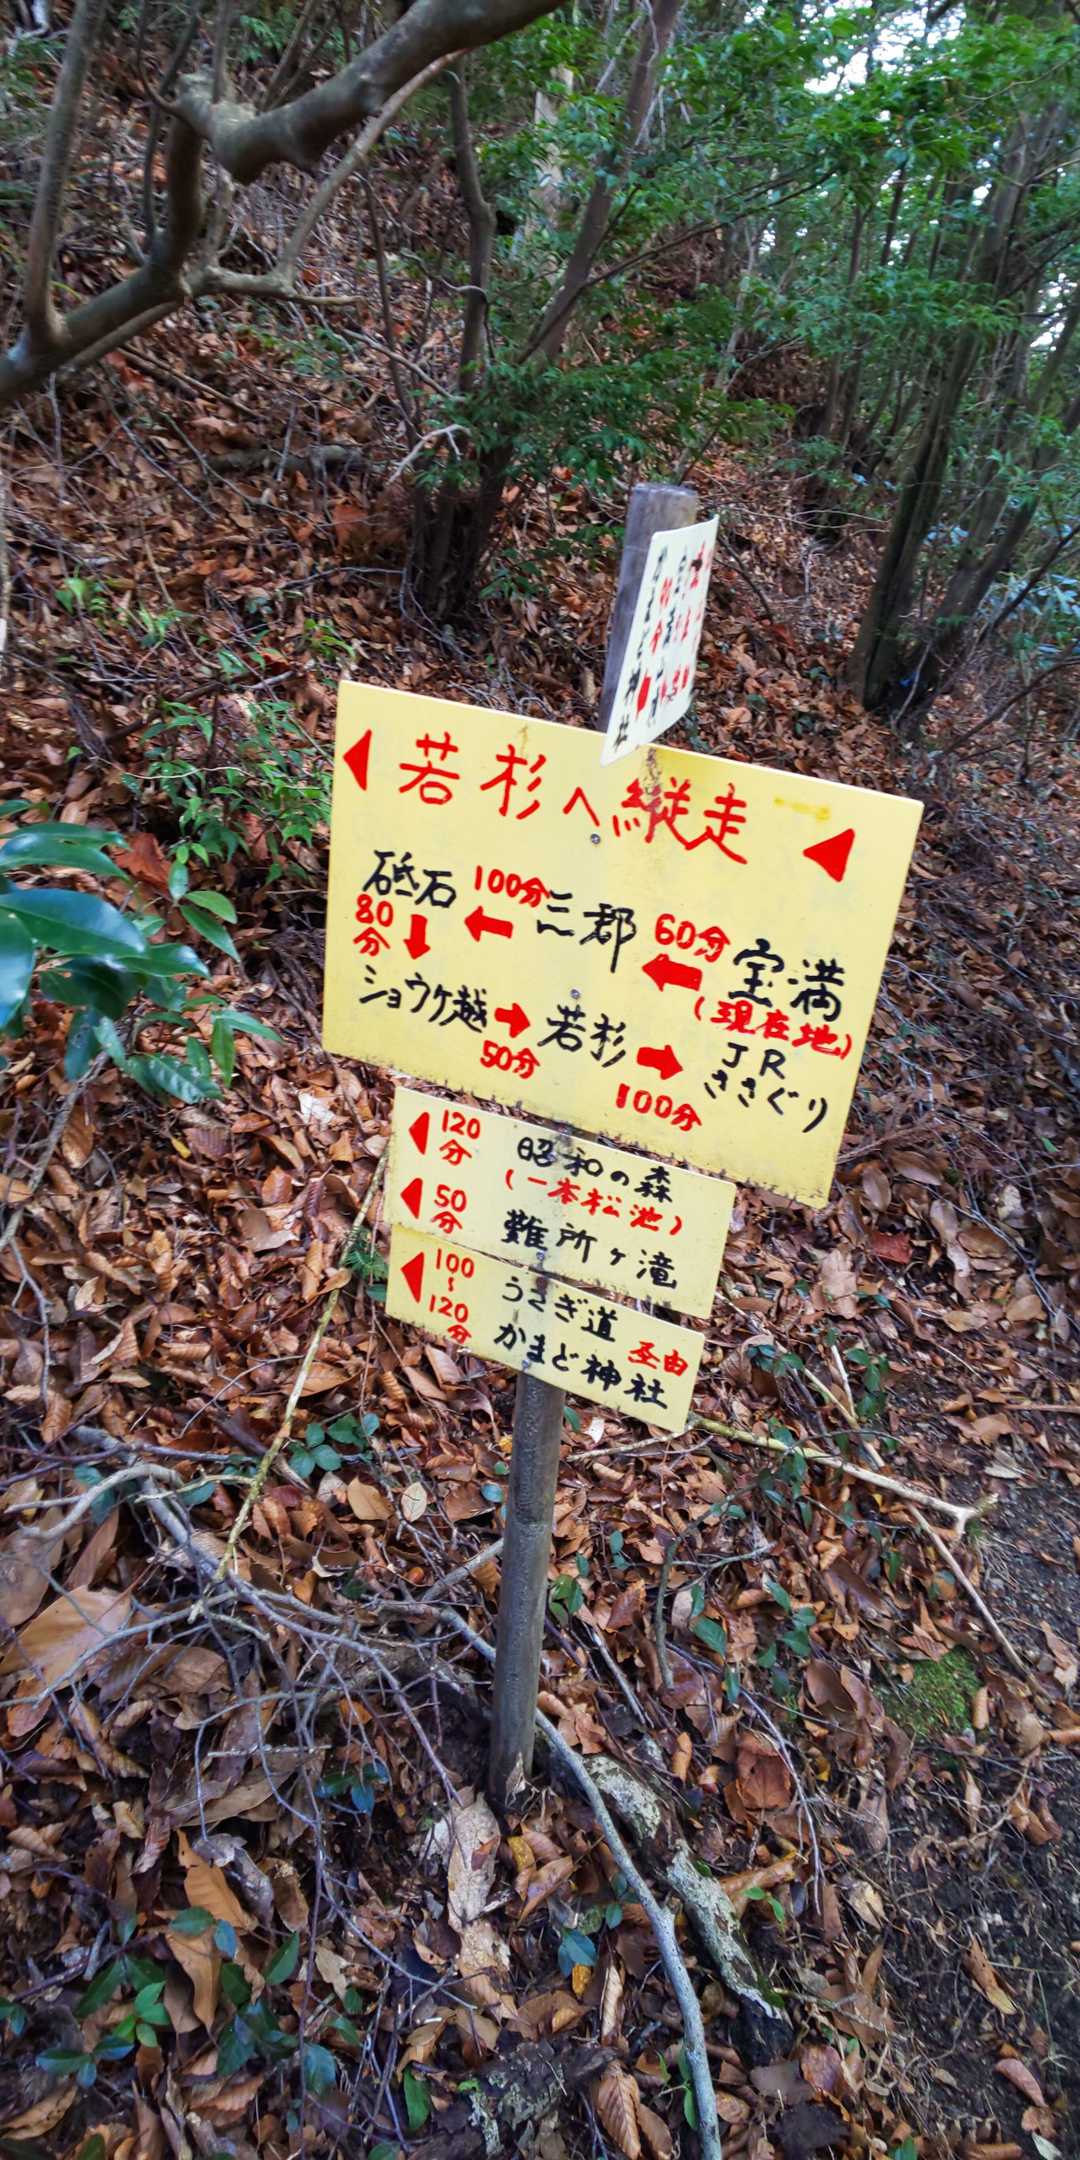 若杉へ縦走
砥石 100分 三郡 60分 宝満
80分 (現在地)
ショウケ越 50分 若杉 100分 JR ささぐり
120分 昭和の森
(一本松池)
50分 難所ヶ滝
100〜120分 うさぎ道
かまど神社